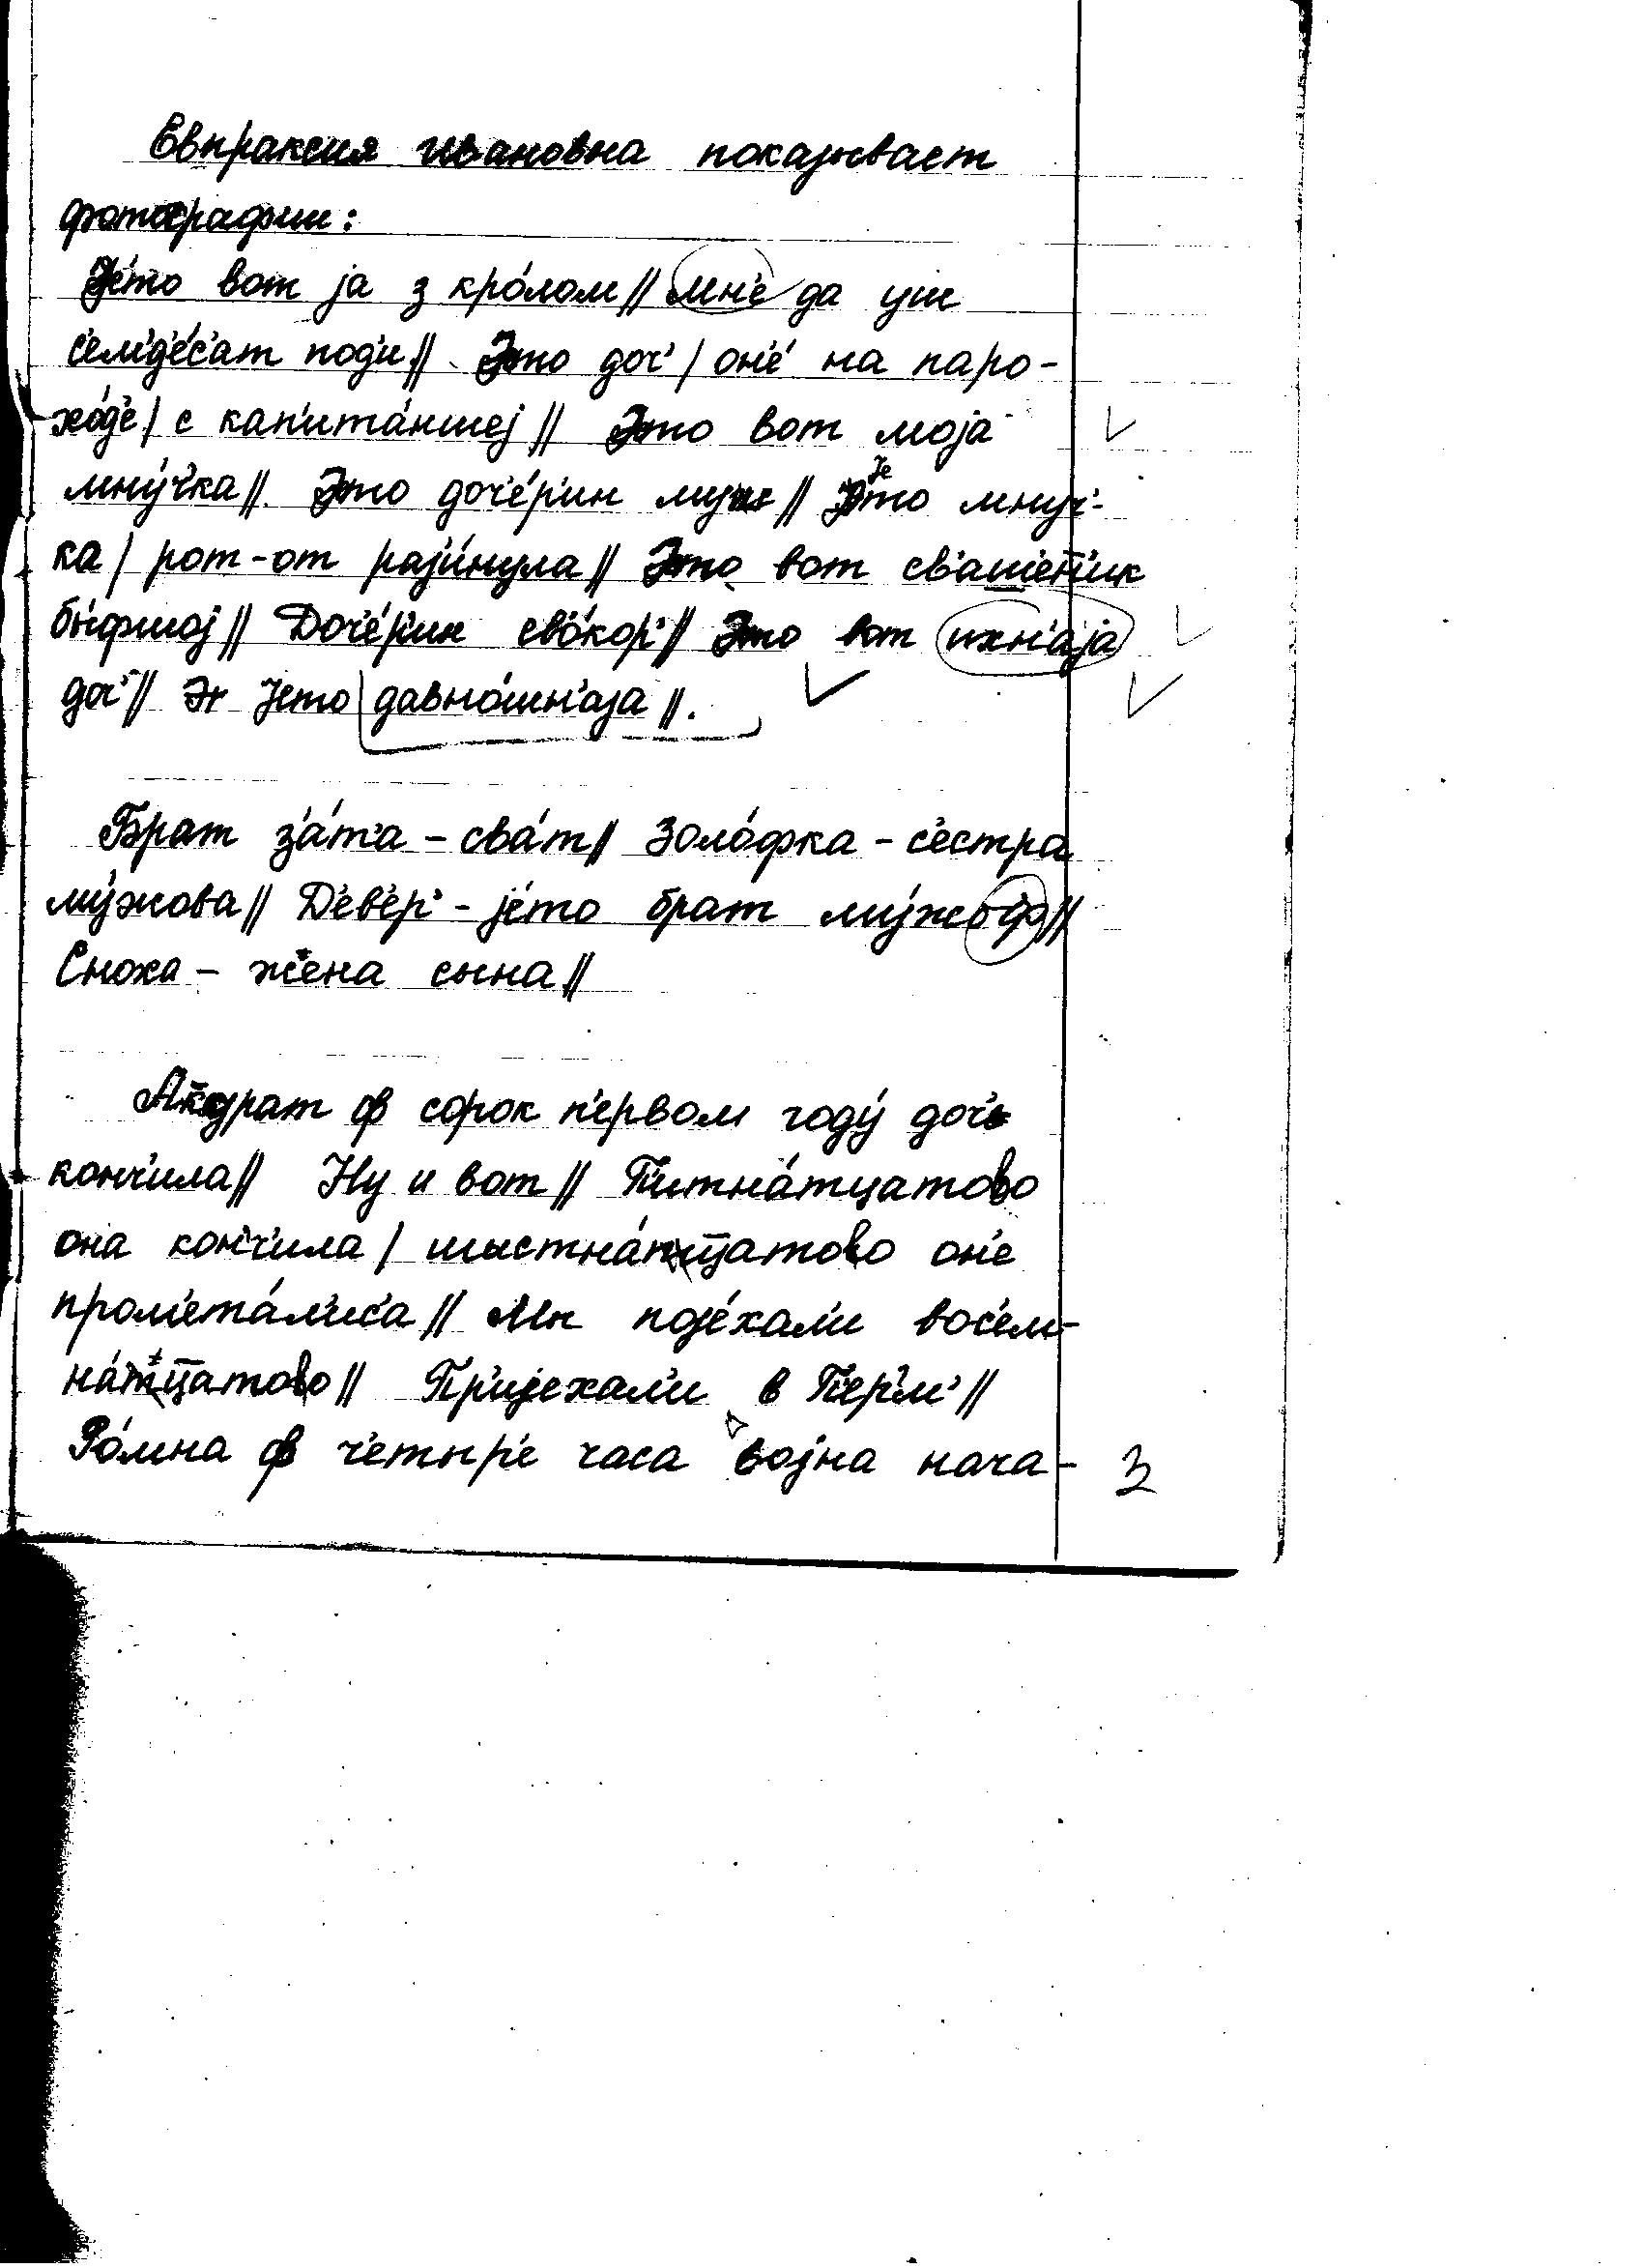 Евпраксия Ивановна показывает
фотографии:
Је́то вот ја з кро́лом // мн'е да уш
с'ем'д'е́с'ат под'и // Это доч' / он'е́ на паро-
хо́д'е / с кап'ита́ншеј // Это вот моја
мну́ч'ка // Это доч'е́р'ин муш // Јето мнуч'-
ка / рот-от раз'и́нула // Это вот св'аш'е́н'ик
бы́фшој // Доч'е́р'ин св'о́кор' // Это вот ихн'аја
доч' // Јето давно́шн'аја //.
Брат з'а́т'а - сва́т // Золо́фка - с'естра
му́жова // Д'е́в'ер' - је́то брат му́жоф //
Сноха - жена сына //
Акурат ф сорок п'ервом году́ доч'
кончила // Ну и вот // П'итна́тцатово
она кон'ч'ила / шыстна́цатово он'е
пром'ета́л'ис'а // Мы појехал'и вос'ем-
на́цатово // Пр'ијехал'и в П'ер'м' //
Ро́мна ф ч'етыр'е часа војна нача-
3